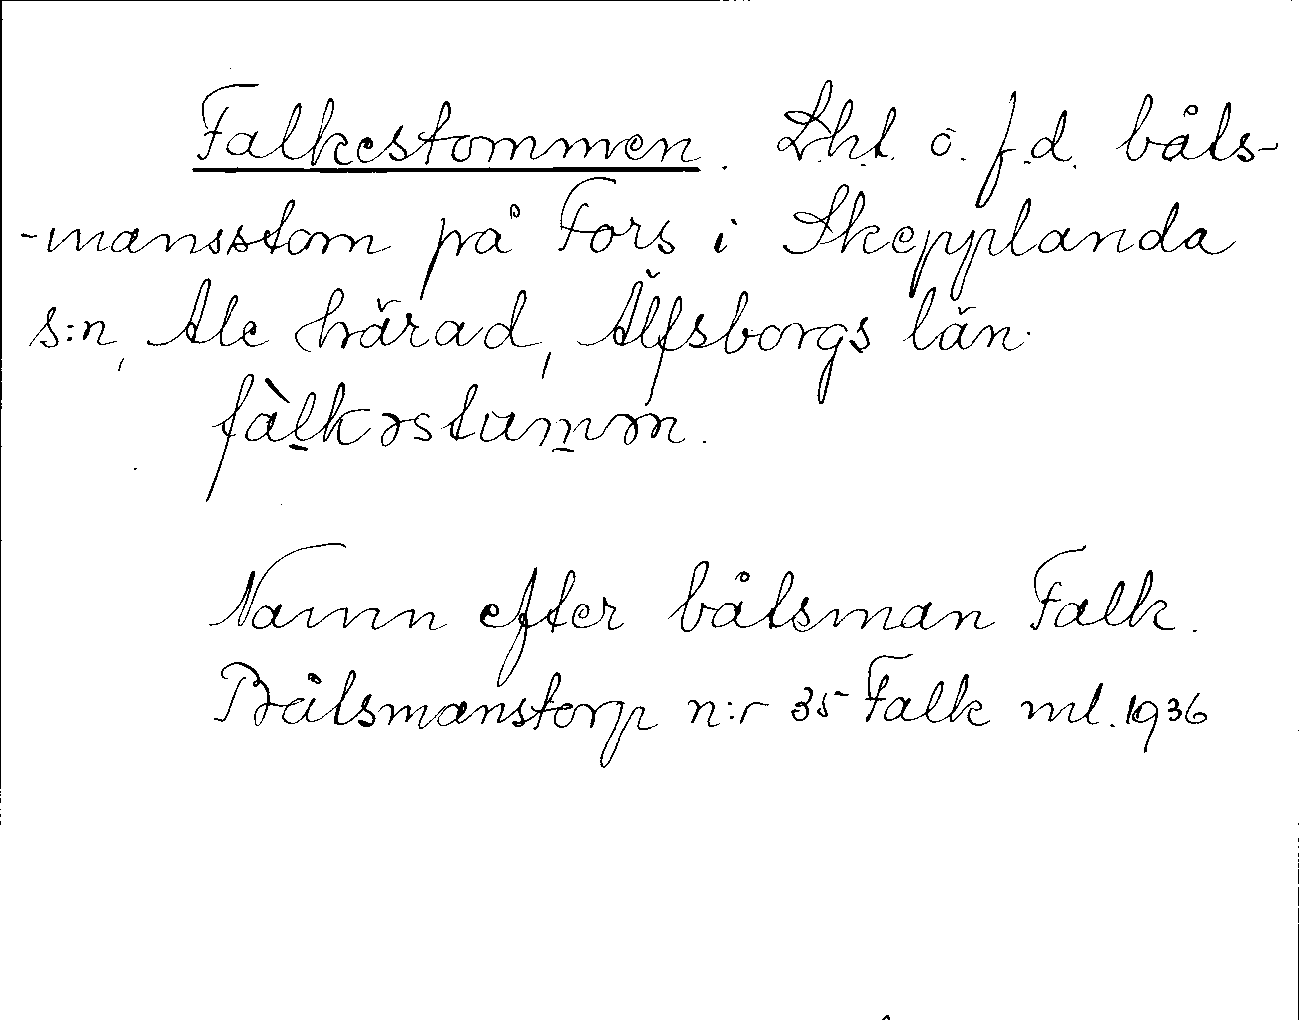 Falkestommen. Lht. o. f.d. båts-
-mansstom på Fors i Skepplanda
s:n, Ale härad, Älfsborgs län.
fàlkəstumm.
Namn efter båtsman Falk.
Båtsmanstorp n:r 35 Falk ml. 1936